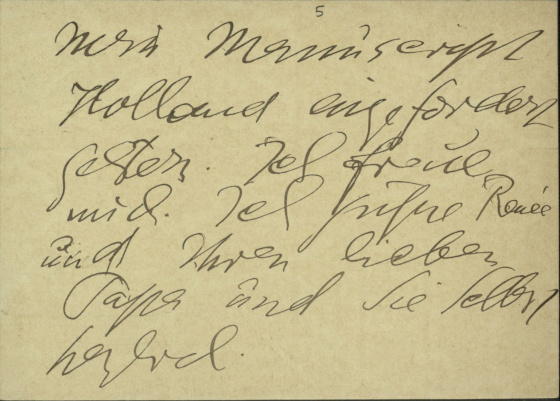 5
Mein Manuscript
Holland eingefordert
gestern. Ich freue
mich. Ich grüße Renée
und Ihren lieben
Papa und Sie selbst
herzlich.